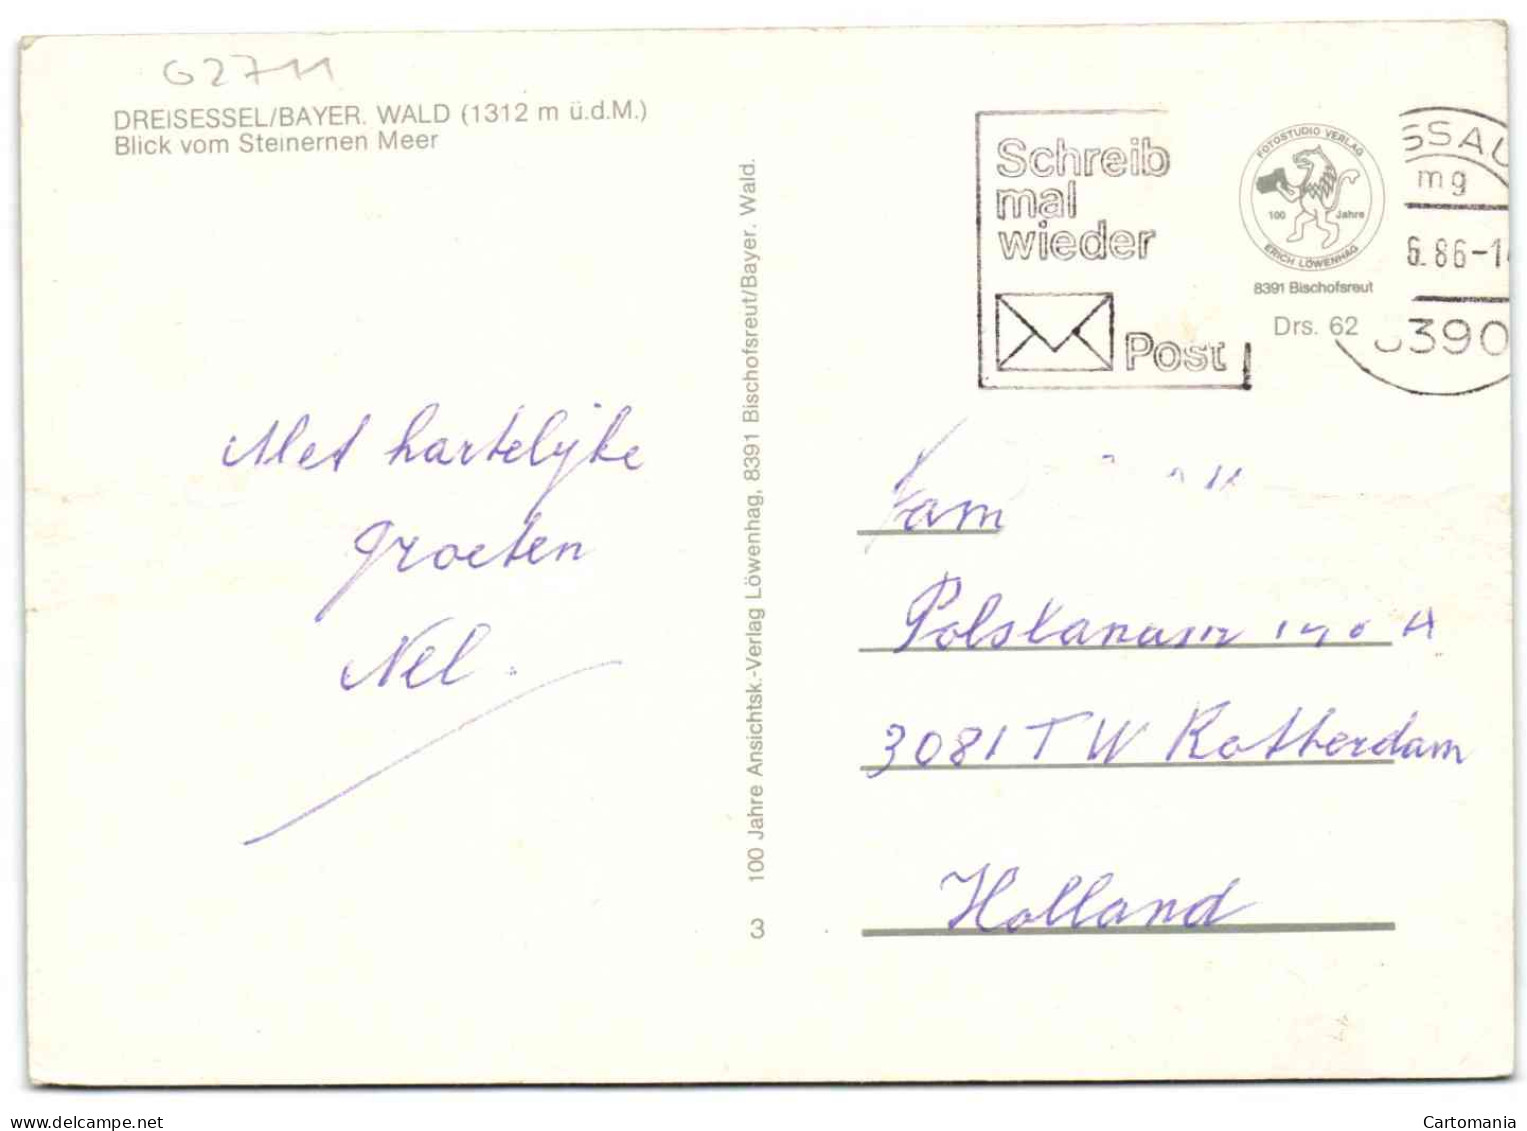 G2711
DREISESSEL/BAYER. WALD (1312 m ü.d.M.)
Blick vom Steinernen Meer
Met hartelijke
groeten
Nel.
100 Jahre Ansichtsk.-Verlag Löwenhag, 8391 Bischofsreut/Bayer. Wald.
3
Schreib
mal
wieder
Post
FOTOSTUDIO VERLAG
100 Jahre
ERICH LÖWENHAG
8391 Bischofsreut
Drs. 62
SSAU
mg
6.86-1
8390
Fam
3081 TW Rotterdam
Holland
www.delcampe.net
Cartomania